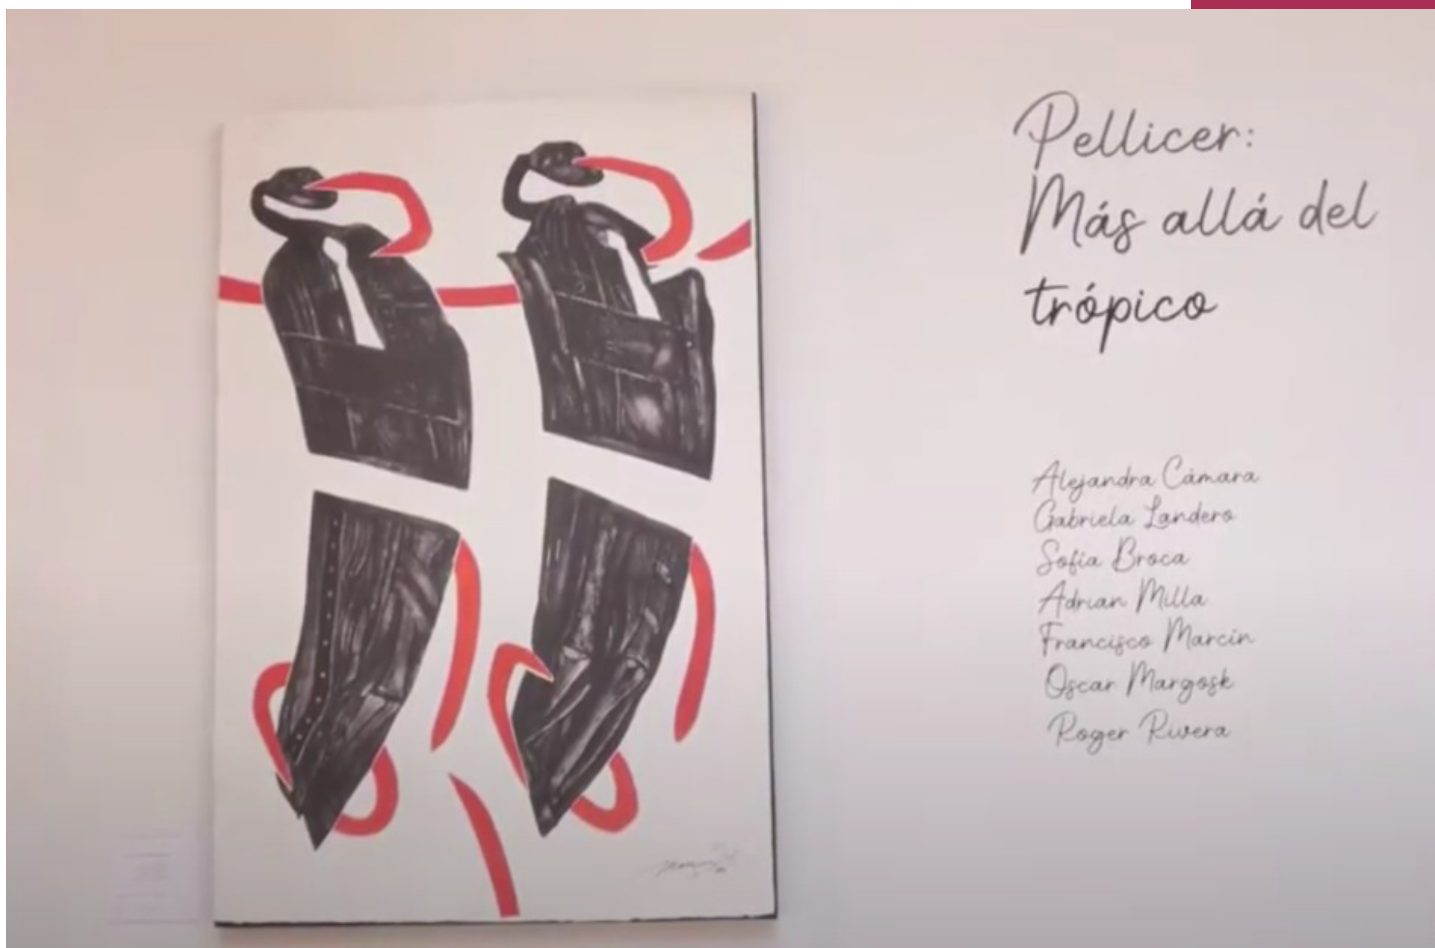 Pellicer:
Más allá del
trópico
Alejandra Cámara
Gabriela Landero
Sofía Broca
Adrian Milla
Francisco Marcín
Oscar Margosk
Roger Rivera